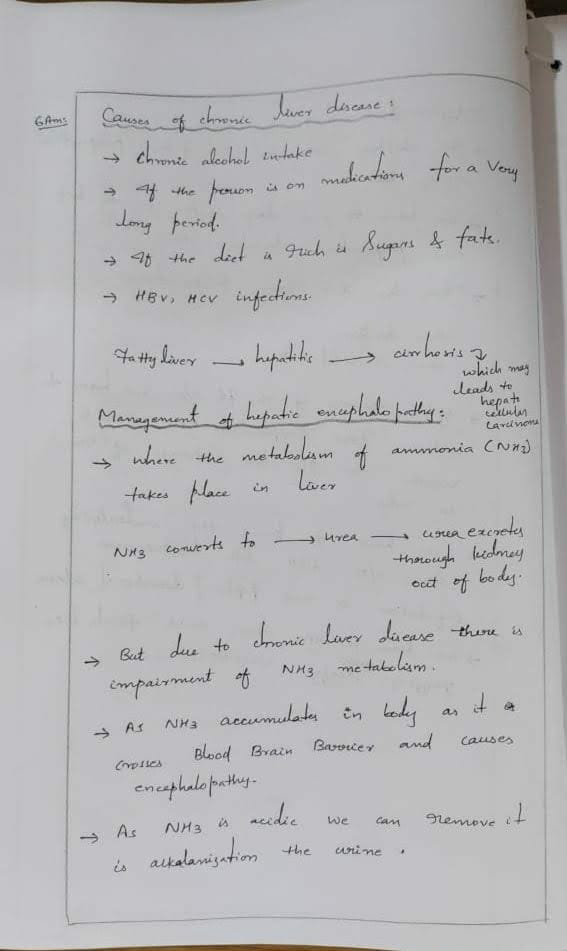 6Ams
Causes of chronic liver disease :
→ Chronic alcohol intake
→ If the person is on medications for a very
long period.
→ If the diet is rich is Sugars & fats.
→ HBV, HCV infections.
Fatty liver → hepatitis → cirrhosis
which may
leads to
hepato
cellular
carcinoma
Management of hepatic encephalopathy :
→ where the metabolism of ammonia (NH3)
takes place in liver
NH3 converts to → urea → urea excretes
thorough kidney
out of body.
→ But due to chronic liver disease there is
impairment of NH3 metabolism.
→ As NH3 accumulates in body as it
crosses Blood Brain Barrier and causes
encephalopathy.
→ As NH3 is acidic we can remove it
is alkalanization the urine .